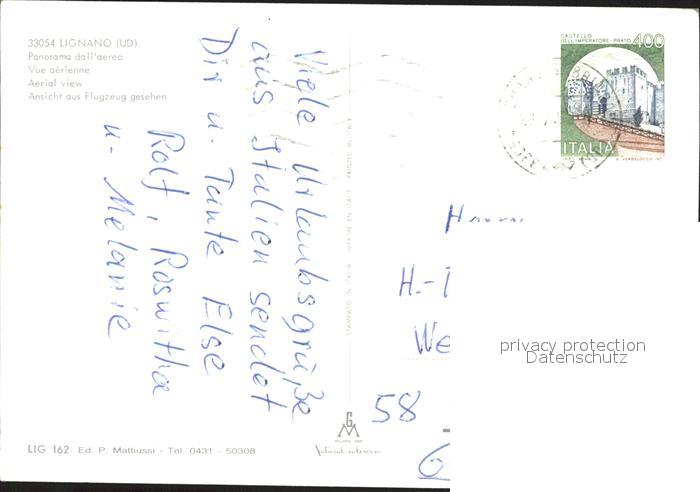 33054 LIGNANO (UD)
Panorama dall'aereo
Vue aérienne
Aerial view
Ansicht aus Flugzeug gesehen
Viele Urlaubsgrüße
aus Italien sendet
Dir u. Tante Else
Rolf, Roswitha
u. Melanie
LIG 162. Ed. P. Mattiussi - Tel. 0431 - 50308
STAMPATO IN ITALIA
CASTELLO
DELL'IMPERATORE - PRATO
400
ITALIA
Herrn
H.-
We
58
6
privacy protection
Datenschutz